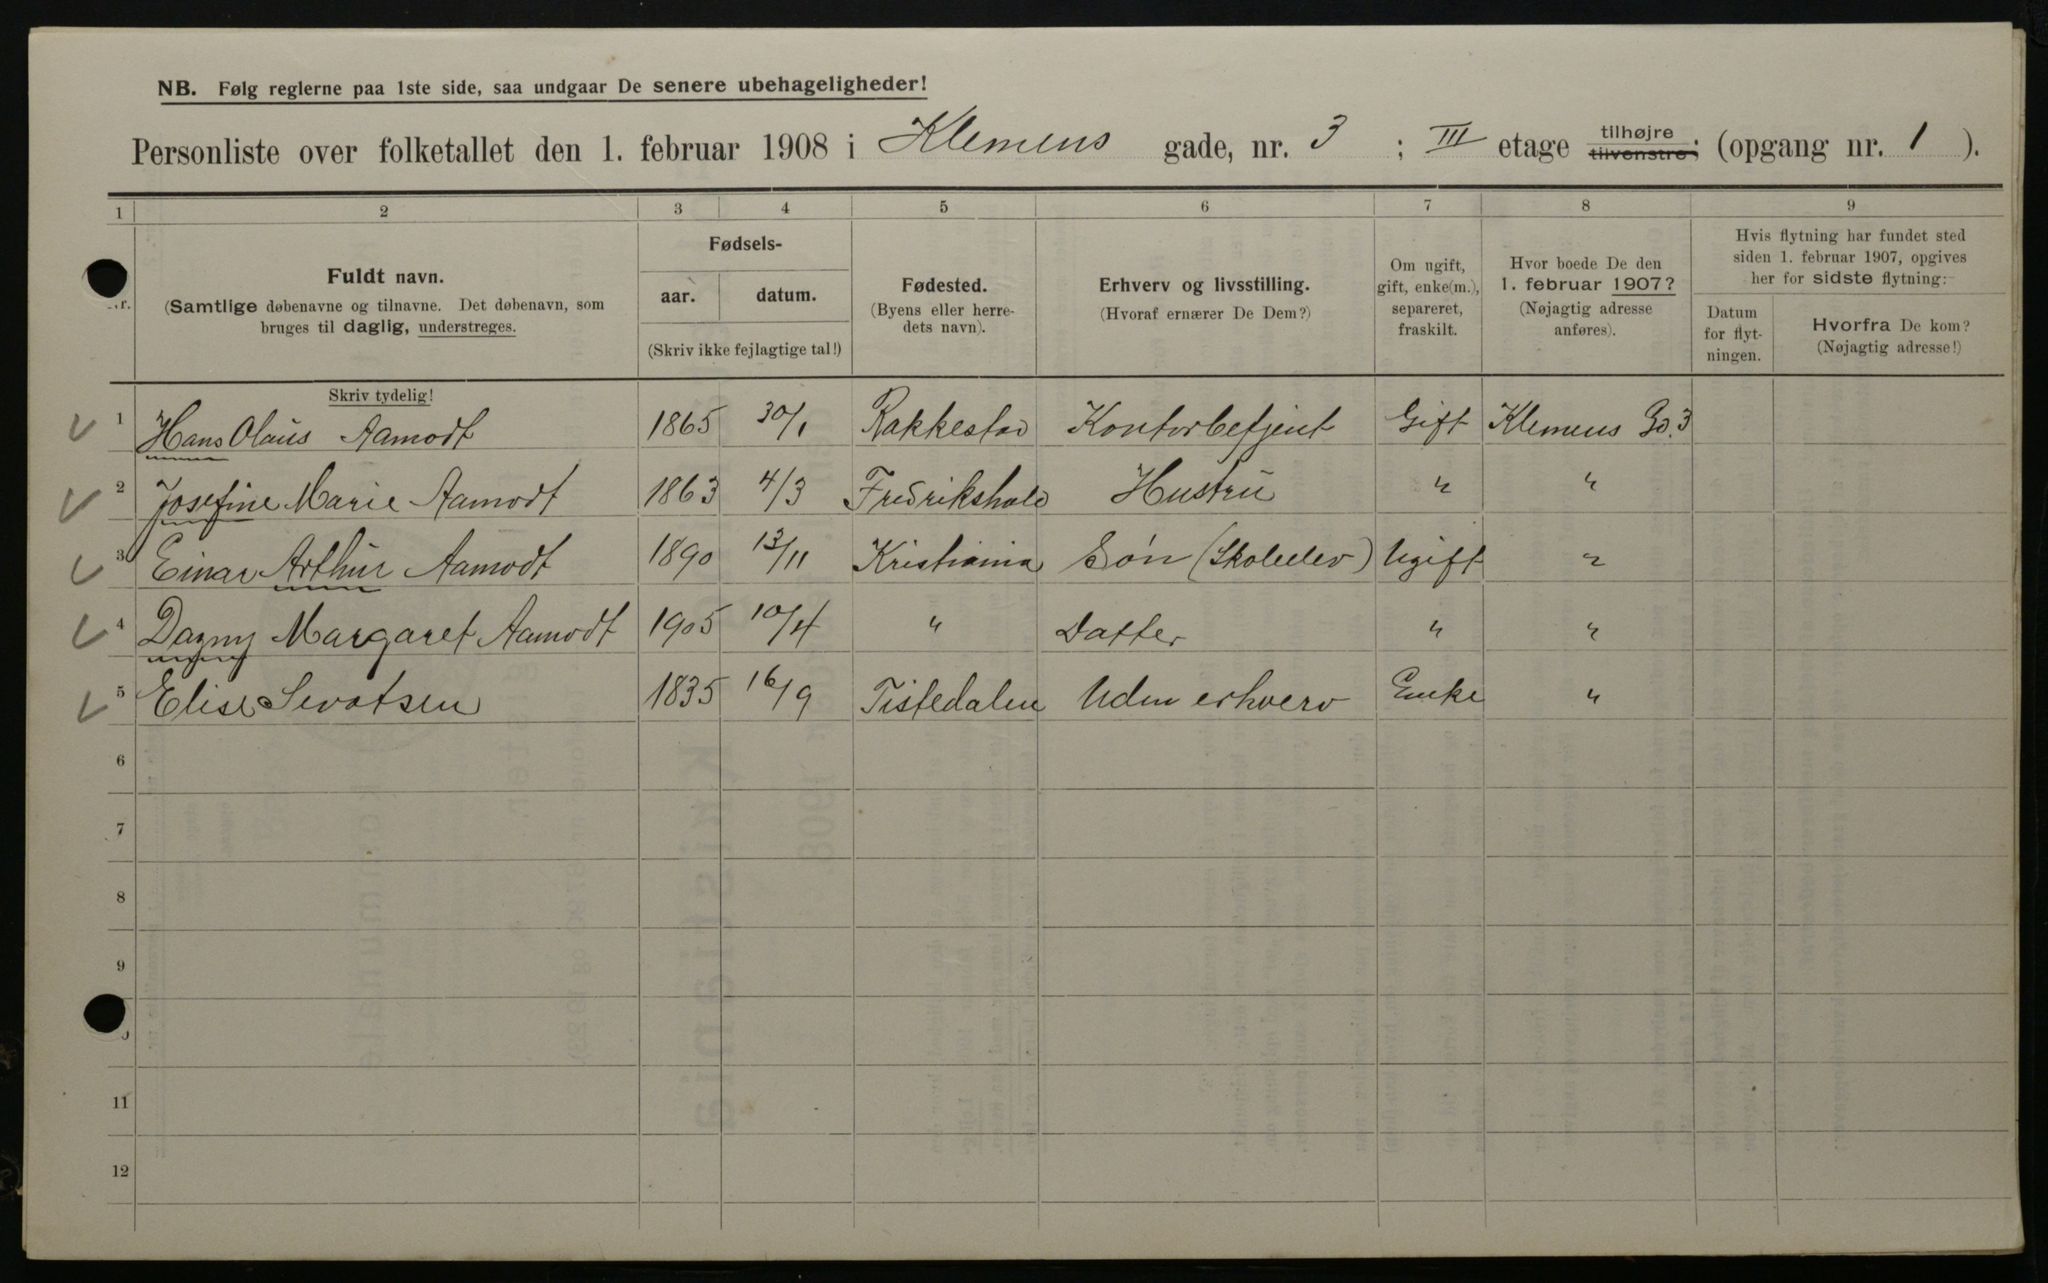 NB. Følg reglerne paa 1ste side, saa undgaar De senere ubehageligheder!
Personliste over folketallet den 1. februar 1908 i Klemens gade, nr. 3 ; III etage tilhøjre tilvenstre; (opgang nr. 1 ).
1 2 3 4 5 6 7 8 9
Fuldt navn.
(Samtlige døbenavne og tilnavne. Det døbenavn, som
bruges til daglig, understreges.
Fødsels-
aar. datum.
(Skriv ikke fejlagtige tal!)
Fødested.
(Byens eller herre-
dets navn).
Erhverv og livsstilling.
(Hvoraf ernærer De Dem?)
Om ugift,
gift, enke(m.),
separeret,
fraskilt.
Hvor boede De den
1. februar 1907?
(Nøjagtig adresse
anføres).
Hvis flytning har fundet sted
siden 1. februar 1907, opgives
her for sidste flytning:
Datum
for flyt-
ningen.
Hvorfra De kom?
(Nøjagtig adresse!)
Skriv tydelig!
1 Hans Olaus Aamodt 1865 30/1 Rakkestad Kontorbetjent Gift Klemens Gd. 3
2 Josefine Marie Aamodt 1863 4/3 Fredrikshald Hustru " "
3 Einar Arthur Aamodt 1890 13/11 Kristiania Søn (Skoleelev) Ugift "
4 Dagny Margaret Aamodt 1905 10/4 " Datter " "
5 Elise 1835 16/9 Tistedalen Uden erhverv Enke "
6
7
8
9
11
12